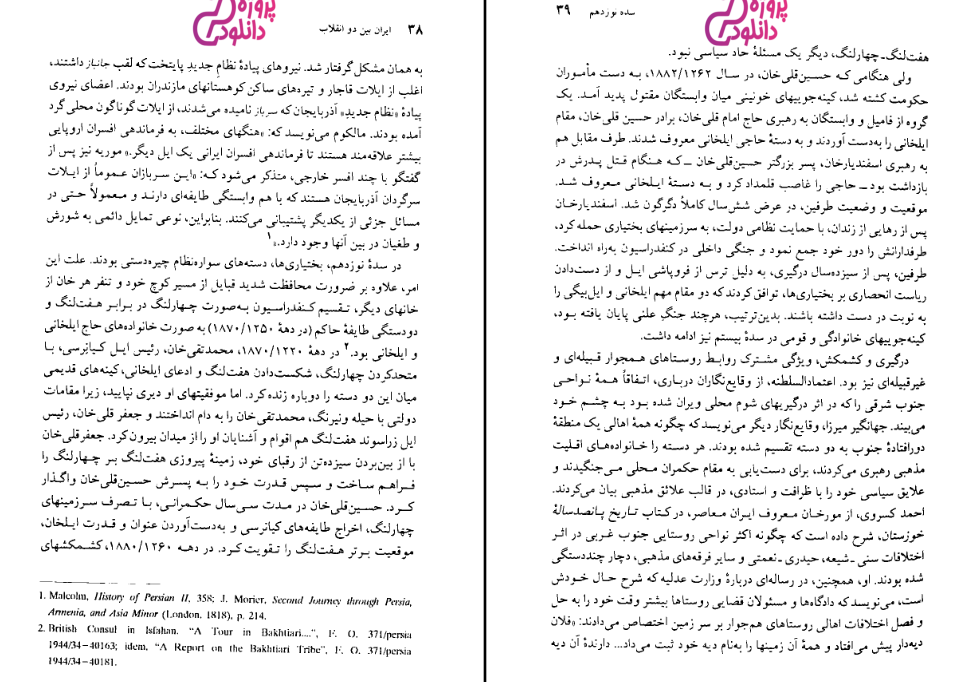 ۳۸ ایران بین دو انقلاب
پروژه
دانلود
به همان مشکل گرفتار شد. نیروهای پیادهٔ نظام جدیدِ پایتخت‌که لقب جانباز داشتند،
اغلب از ایلات قاجار و تیره‌های ساکن کوهستانهای مازندران بودند. اعضای نیروی
پیادهٔ «نظام جدید» آذربایجان‌که سرباز نامیده می‌شدند، از ایلات گوناگون محلی گرد
آمده بودند. مالکوم می‌نویسد که: «هنگهای مختلف، به فرماندهی افسران اروپایی
بیشتر علاقه‌مند هستند تا فرماندهی افسران ایرانی یک ایل دیگر.» موریه نیز پس از
گفتگو با چند افسر خارجی، متذکر می‌شود که: «ایـن سـربازان عـموماً از ایـلات
سرگردان آذربایجان هستند که با هم وابستگی طایفه‌ای دارنـد و معمولاً حتی در
مسائل جزئی از یکدیگر پشتیبانی می‌کنند. بنابراین، نوعی تمایل دائمی به شورش
و طغیان در بین آنها وجود دارد.»۱
در سدهٔ نوزدهم، بختیاری‌ها، دسته‌های سواره‌نظام چیره‌دستی بودند. علت این
امر، علاوه بر ضرورت محافظت شدید قبایل از مسیر کوچ خود و تنفر هر خان از
خانهای دیگر، تـقسیم کـنفدراسیون بـه‌صورت چهارلنگ در بـرابـر هـفت‌لنگ و
دودستگی طایفهٔ حاکم (در دههٔ ۱۸۷۰/۱۲۵۰) به صورت خانواده‌های حاج ایلخانی
و ایلخانی بود.۲ در دههٔ ۱۸۷۰/۱۲۲۰، محمدتقی‌خان، رئیس ایـل کـیانرسی، بـا
متحدکردن چهارلنگ، شکست‌دادن هفت‌لنگ و ادعای ایلخانی،کینه‌های قدیمی
میان این دو دسته را دوباره زنده‌کرد. اما موفقیتهای او دیری نپایید، زیرا مقامات
دولتی با حیله ونیرنگ، محمدتقی‌خان را به دام انداختند و جعفر قلی‌خان، رئیس
ایل زراسوند هفت‌لنگ هم اقوام و آشنایان او را از میدان بیرون‌کرد. جعفرقلی‌خان
با از بین‌بردن سیزده‌تن از رقبای خود، زمینهٔ پیروزی هفت‌لنگ بـر چـهارلنگ را
فـراهـم سـاخت و سپس قدرت خـود را بـه پسـرش حسین‌قلی‌خان واگـذار
کـرد. حسین‌قلی‌خان در مـدت سـی‌سال حکـمرانـی، بـا تـصرف سـرزمینهای
چهارلنگ، اخراج طایفه‌های کیانرسی و به‌دست‌آوردن عنوان و قدرت ایلخان،
موقعیت برتر هفت‌لنگ را تقویت کرد. در دهـه ۱۸۸۰/۱۲۶۰، کشـمکشهای
1. Malcolm, History of Persian II, 358; J. Morier, Second Journey through Persia,
Armenia, and Asia Minor (London, 1818), p. 214.
2. British Consul in Isfahan. “A Tour in Bakhtiari....”, F. O. 371/persia
1944/34–40163; idem, “A Report on the Bakhtiari Tribe”, F. O. 371/persia
1944/34–40181.
سده نوزدهم ۳۹
پروژه
دانلود
هفت‌لنگ-چهارلنگ، دیگر یک مسئلهٔ حاد سیاسی نبود.
ولی هنگامی کـه حسـین‌قلی‌خان، در سـال ۱۸۸۲/۱۲۶۲، بـه دست مأمـوران
حکومت کشته شد،کینه‌جوییهای خونینی میان وابستگان مقتول پدید آمـد. یک
گروه از فامیل و وابستگان به رهبری حاج امام قلی‌خان، برادر حسین قلی‌خان، مقام
ایلخانی را به‌دست آوردند و به دستهٔ حاجی ایلخانی معروف شدند. طرف مقابل هم
به رهبری اسفندیارخان، پسر بزرگتر حسین‌قلی‌خان ــ کـه هـنگام قـتل پـدرش در
بازداشت بود ــ حاجی را غاصب قلمداد کرد و بـه دسـتهٔ ایـلخانی مـعروف شـد.
موقعیت و وضعیت طرفین، در عرض شش‌سال کاملاً دگرگون شد. اسفندیارخان
پس از رهایی از زندان، با حمایت نظامی دولت، به سرزمینهای بختیاری حمله‌کرد،
طرفدارانش را دور خود جمع نمود و جنگی داخلی در کنفدراسیون به‌راه انداخت.
طرفین، پس از سیزده‌سال درگیری، به دلیل ترس از فروپاشی ایـل و از دست‌دادن
ریاست انحصاری بر بختیاری‌ها، توافق‌کردند که دو مقام مهم ایلخانی و ایل‌بیگی را
به نوبت در دست داشته باشند. بدین‌ترتیب، هرچند جنگِ علنی پایان یافته بـود،
کینه‌جوییهای خانوادگی و قومی در سدهٔ بیستم نیز ادامه داشت.
درگیری و کشمکش، ویژگی مشترک روابـط روستاهای هـمجوار قبیله‌ای و
غیرقبیله‌ای نیز بود. اعتمادالسلطنه، از وقایع‌نگاران درباری، اتـفاقاً هـمهٔ نـواحی
جنوب شرقی را که در اثر درگیریهای شوم محلی ویران شده بـود بـه چشـم خـود
می‌بیند. جهانگیر میرزا، وقایع‌نگار دیگر می‌نویسد که چگونه همهٔ اهالی یک منطقهٔ
دورافتادهٔ جنوب به دو دسته تقسیم شده بودند. هر دسته را خـانواده‌هـای اقـلیت
مذهبی رهبری می‌کردند، برای دست‌یابی به مقام حکمران مـحلی مـی‌جنگیدند و
علایق سیاسی خود را با ظرافت و استادی، در قالب علائق مذهبی بیان می‌کردند.
احمد کسروی، از مورخـان معروف ایـران معـاصر، در کـتاب تاریخ پـانصدسالهٔ
خوزستان، شرح داده است که چگونه اکثر نواحی روستایی جنوب غربی در اثـر
اختلافات سنی - شیعه، حیدری - نعمتی و سایر فرقه‌های مذهبی، دچار چنددستگی
شده بودند. او، همچنین، در رساله‌ای دربارهٔ وزارت عدلیه که شرح حال خودش
است، می‌نویسد که دادگاه‌ها و مسئولان قضایی روستاها بیشتر وقت خود را به حل
و فصل اختلافات اهالی روستاهای هم‌جوار بر سر زمین اختصاص می‌دادند: «فلان
دیه‌دار پیش می‌افتاد و همهٔ آن زمینها را به‌نام دیه خود ثبت می‌داد... دارندهٔ آن دیه